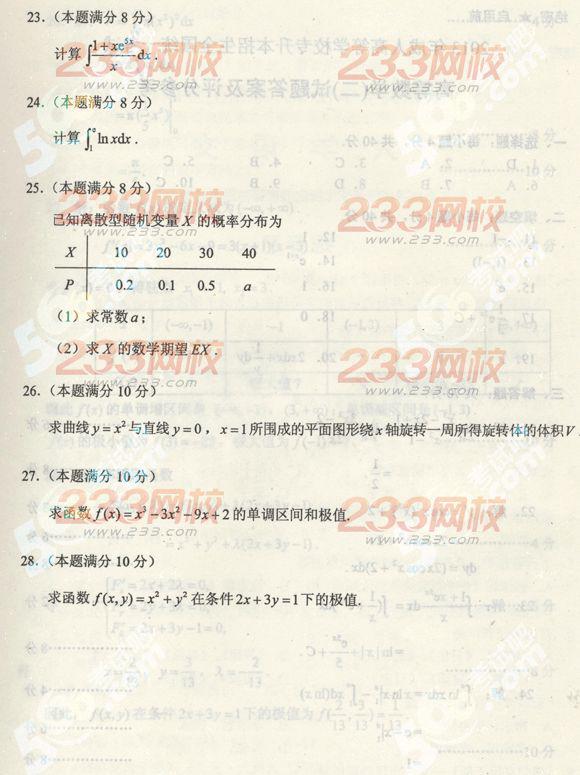 23.（本题满分 8 分）
计算 ∫(1+xe^{5x})/x dx .
24.（本题满分 8 分）
计算 ∫₁^e ln xdx .
25.（本题满分 8 分）
已知离散型随机变量 X 的概率分布为
X 10 20 30 40
P 0.2 0.1 0.5 a
（1）求常数 a；
（2）求 X 的数学期望 EX .
26.（本题满分 10 分）
求曲线 y = x² 与直线 y = 0， x = 1 所围成的平面图形绕 x 轴旋转一周所得旋转体的体积 V .
27.（本题满分 10 分）
求函数 f(x) = x³ − 3x² − 9x + 2 的单调区间和极值.
28.（本题满分 10 分）
求函数 f(x, y) = x² + y² 在条件 2x + 3y = 1 下的极值.
233网校
www.233.com